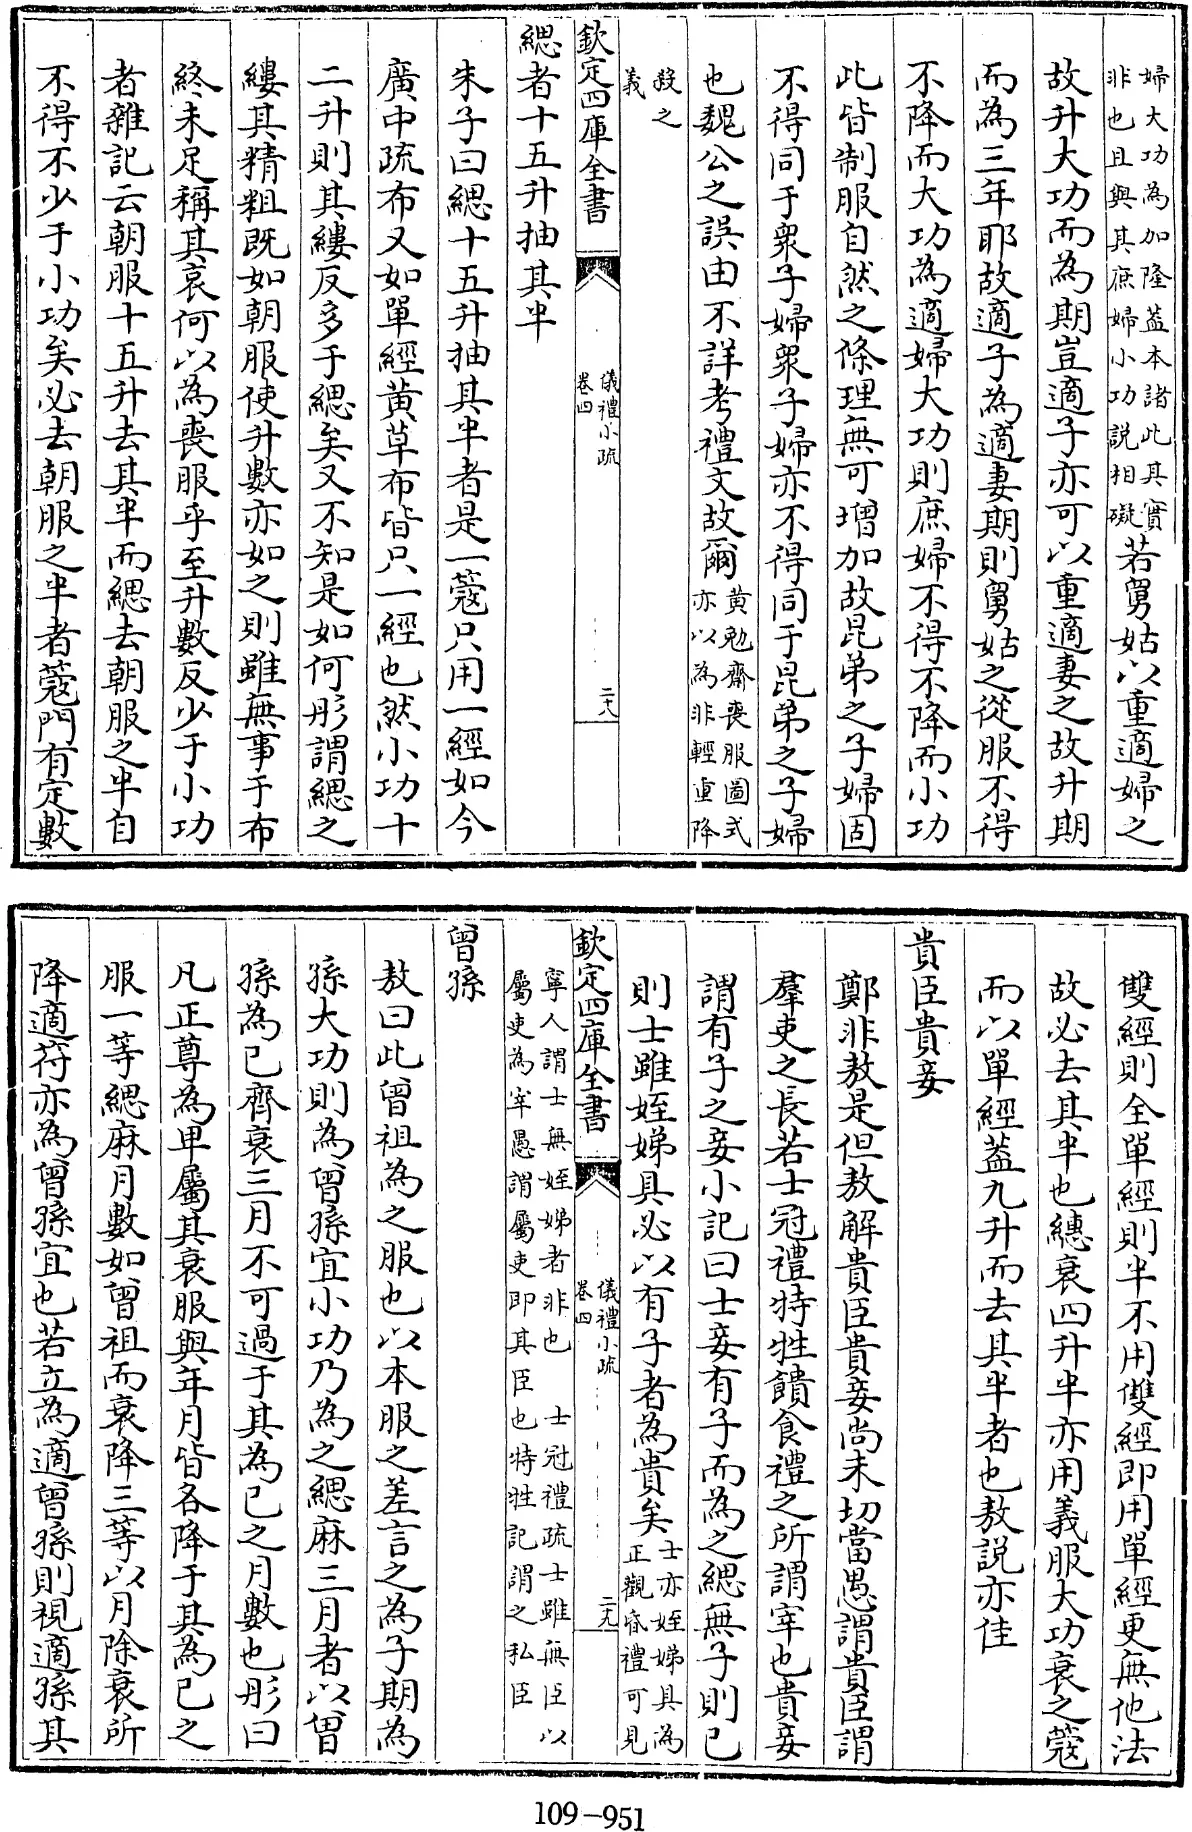 婦大功為加隆葢本諸此其實
非也且與其庶婦小功説相礙
若舅姑以重適婦之
故升大功而為期豈適子亦可以重適妻之故升期
而為三年耶故適子為適妻期則舅姑之從服不得
不降而大功為適婦大功則庶婦不得不降而小功
此皆制服自然之條理無可增加故昆弟之子婦固
不得同于衆子婦衆子婦亦不得同于昆弟之子婦
也魏公之誤由不詳考禮文故爾
黄勉齋喪服圖式
亦以為非輕重降
殺之
義
欽定四庫全書
儀禮小疏
卷四
二十八
緦者十五升抽其半
朱子曰緦十五升抽其半者是一蔻只用一經如今
廣中疏布又如單經黄草布皆只一經也然小功十
二升則其縷反多于緦矣又不知是如何彤謂緦之
縷其精粗既如朝服使升數亦如之則雖無事于布
終未足稱其哀何以為喪服乎至升數反少于小功
者雜記云朝服十五升去其半而緦去朝服之半自
不得不少于小功矣必去朝服之半者蔻門有定數
雙經則全單經則半不用雙經即用單經更無他法
故必去其半也繐衰四升半亦用義服大功衰之蔻
而以單經葢九升而去其半者也敖説亦佳
貴臣貴妾
鄭非敖是但敖解貴臣貴妾尚未切當愚謂貴臣謂
羣吏之長若士冠禮特牲饋食禮之所謂宰也貴妾
謂有子之妾小記曰士妾有子而為之緦無子則已
則士雖姪娣具必以有子者為貴矣
士亦姪娣具為
正觀昏禮可見
欽定四庫全書
儀禮小疏
卷四
二十九
寧人謂士無姪娣者非也 士冠禮疏士雖無臣以
屬吏為宰愚謂屬吏即其臣也特牲記謂之私臣
曾孫
敖曰此曾祖為之服也以本服之差言之為子期為
孫大功則為曾孫宜小功乃為之緦麻三月者以曾
孫為已齊衰三月不可過于其為已之月數也彤曰
凡正尊為卑屬其衰服與年月皆各降于其為已之
服一等緦麻月數如曾祖而衰降三等以月除衰所
降適符亦為曾孫宜也若立為適曾孫則視適孫其
109-951